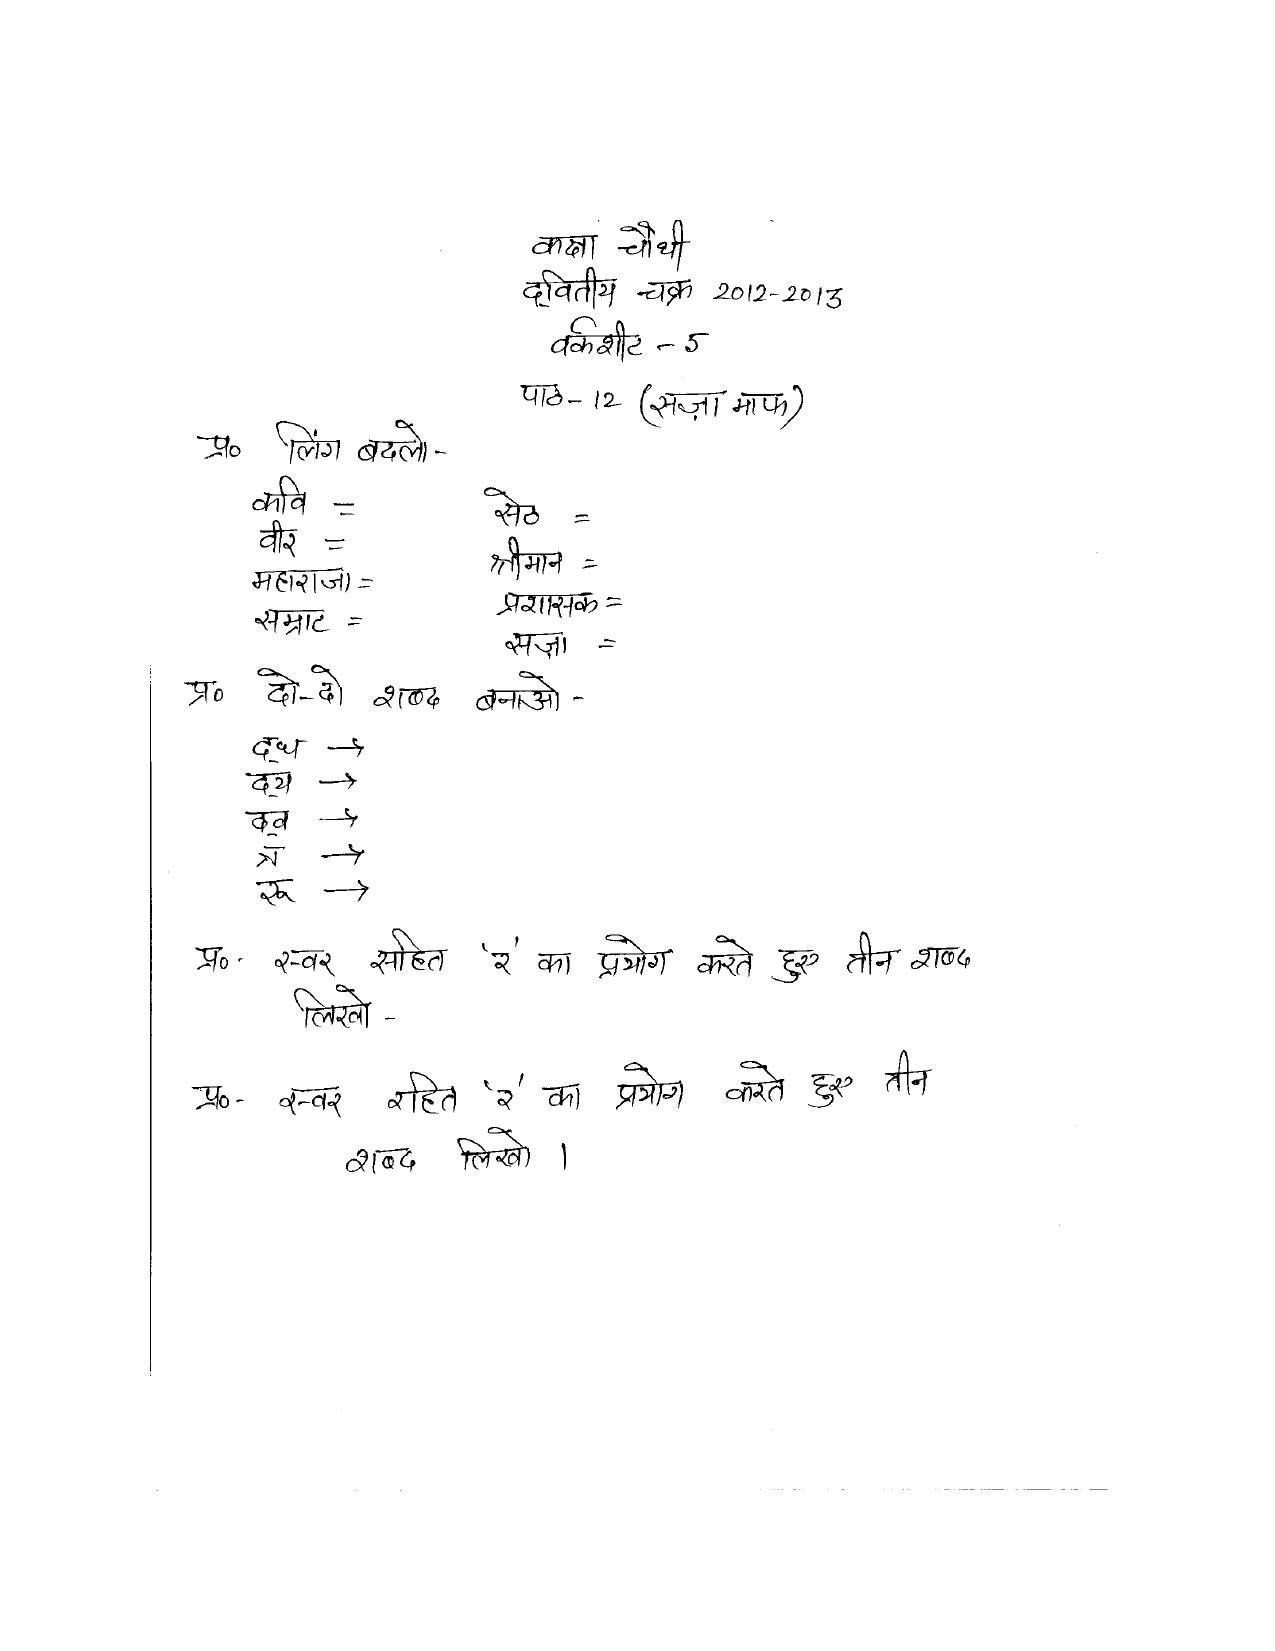 कक्षा चौथी
द्वितीय चक्र 2012-2013
वर्कशीट - 5
पाठ - 12 (सज़ा माफ)
प्र० लिंग बदलो -
कवि = सेठ =
वीर = श्रीमान =
महाराजा = प्रशासक =
सम्राट = सज़ा =
प्र० दो-दो शब्द बनाओ -
द्ध →
द्य →
द्व →
त्र →
रू →
प्र०- स्वर सहित 'र' का प्रयोग करते हुए तीन शब्द
लिखो -
प्र०- स्वर रहित 'र' का प्रयोग करते हुए तीन
शब्द लिखो ।